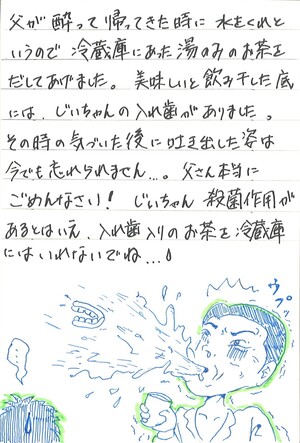 父が酔って帰ってきた時に水をくれと
いうので冷蔵庫にあった湯のみのお茶を
だしてあげました。美味しいと飲み干した底
には、じいちゃんの入れ歯がありました。
その時の気づいた後に吐き出した姿は
今でも忘れられません…。父さん本当に
ごめんなさい！じいちゃん殺菌作用が
あるとはいえ、入れ歯入りのお茶を冷蔵庫
にはいれないでね…！
ウプッ
…